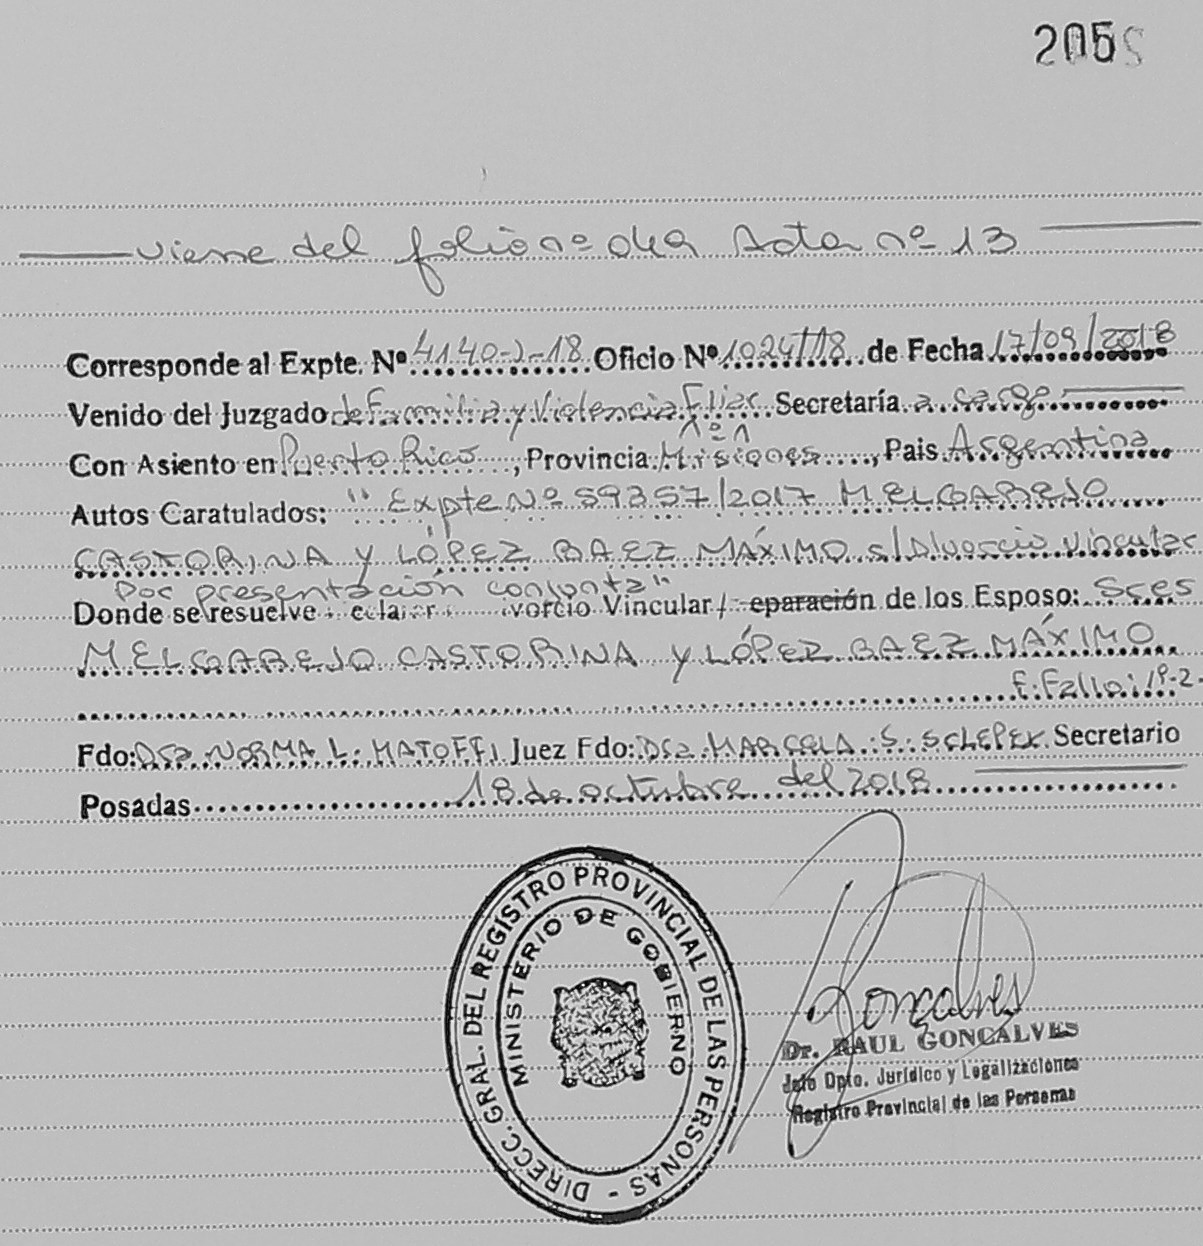 205
viene del folio nº 049 Acta nº 13
Corresponde al Expte. Nº 4140-J-18 Oficio Nº 1024/18 de Fecha 17/09/2018
Venido del Juzgado de Familia y Violencia Fliar Secretaría a cargo
Nº 1
Con Asiento en Puerto Rico, Provincia: Misiones, Pais Argentina
Autos Caratulados: "Expte Nº 59357/2017 MELGAREJO
CASTORINA Y LÓPEZ BAEZ MÁXIMO s/Divorcio vincular
por presentación conjunta"
Donde se resuelve Vincular/ eparación de los Esposo: Sres
MELGAREJO CASTORINA y LÓPEZ BAEZ MÁXIMO
F. Fallo: 1º-2-
Fdo: Dra. NORMA L. MATOFFI Juez Fdo: Dra. MARCELA S. SCLEPEK Secretario
Posadas 18 de octubre del 2018
DIRECC. GRAL. DEL REGISTRO PROVINCIAL DE LAS PERSONAS -
MINISTERIO DE GOBIERNO
Goncalves
Dr. RAUL GONCALVES
Jefe Dpto. Jurídico y Legalizaciones
Registro Provincial de las Personas